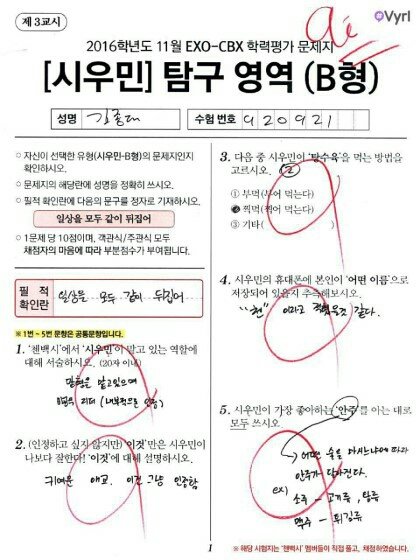 제 3교시
Vyrl
2016학년도 11월 EXO-CBX 학력평가 문제지
[시우민] 탐구 영역 (B형)
성명 김종대 수험 번호 920921
○ 자신이 선택한 유형(시우민-B형)의 문제지인지
확인하시오.
○ 문제지의 해당란에 성명을 정확히 쓰시오.
○ 필적 확인란에 다음의 문구를 정자로 기재하시오.
일상을 모두 같이 뒤집어
○ 1문제 당 10점이며, 객관식/주관식 모두
채점자의 마음에 따라 부분점수가 부여됩니다.
필적
확인란
일상을 모두 같이 뒤집어
※ 1번~5번 문항은 공통문항입니다.
1. '첸백시'에서 '시우민'이 맡고 있는 역할에
대해 서술하시오. (20자 이내)
맏형을 맡고있으며
리더 (내부적으로 인정)
2. (인정하고 싶지 않지만) '이것'만은 시우민이
나보다 잘한다! '이것'에 대해 설명하시오.
귀여운 애교. 이건 그냥 인정함
3. 다음 중 시우민이 '탕수육'을 먹는 방법을
고르시오. 2
① 부먹(부어 먹는다)
② 찍먹(찍어 먹는다)
③ 기타( )
4. 시우민의 휴대폰에 본인이 '어떤 이름'으로
저장되어 있을지 추측해보시오.
"첸" 이라고 같다.
5. 시우민이 가장 좋아하는 '안주'를 아는 대로
모두 쓰시오.
어떤 술을 마시느냐에 따라
안주가 달라진다.
ex)
소주 - 고기류, 탕류
맥주 - 튀김류
1
※ 해당 시험지는 '첸백시' 멤버들이 직접 풀고, 채점하였습니다.